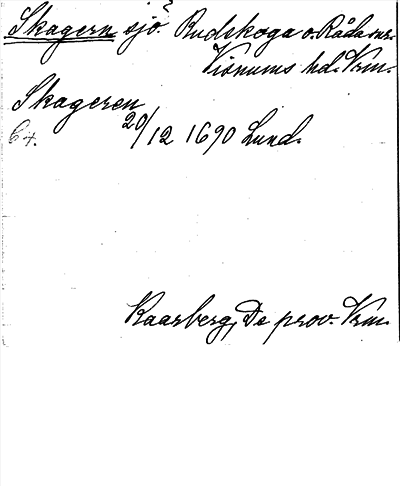 Skagern sjö. Rudskoga o. Råda snr.
Visnums hd. Vrm.
Skageren
20/12 1690 Lund.
Kaarberg, De prov. Vrm.